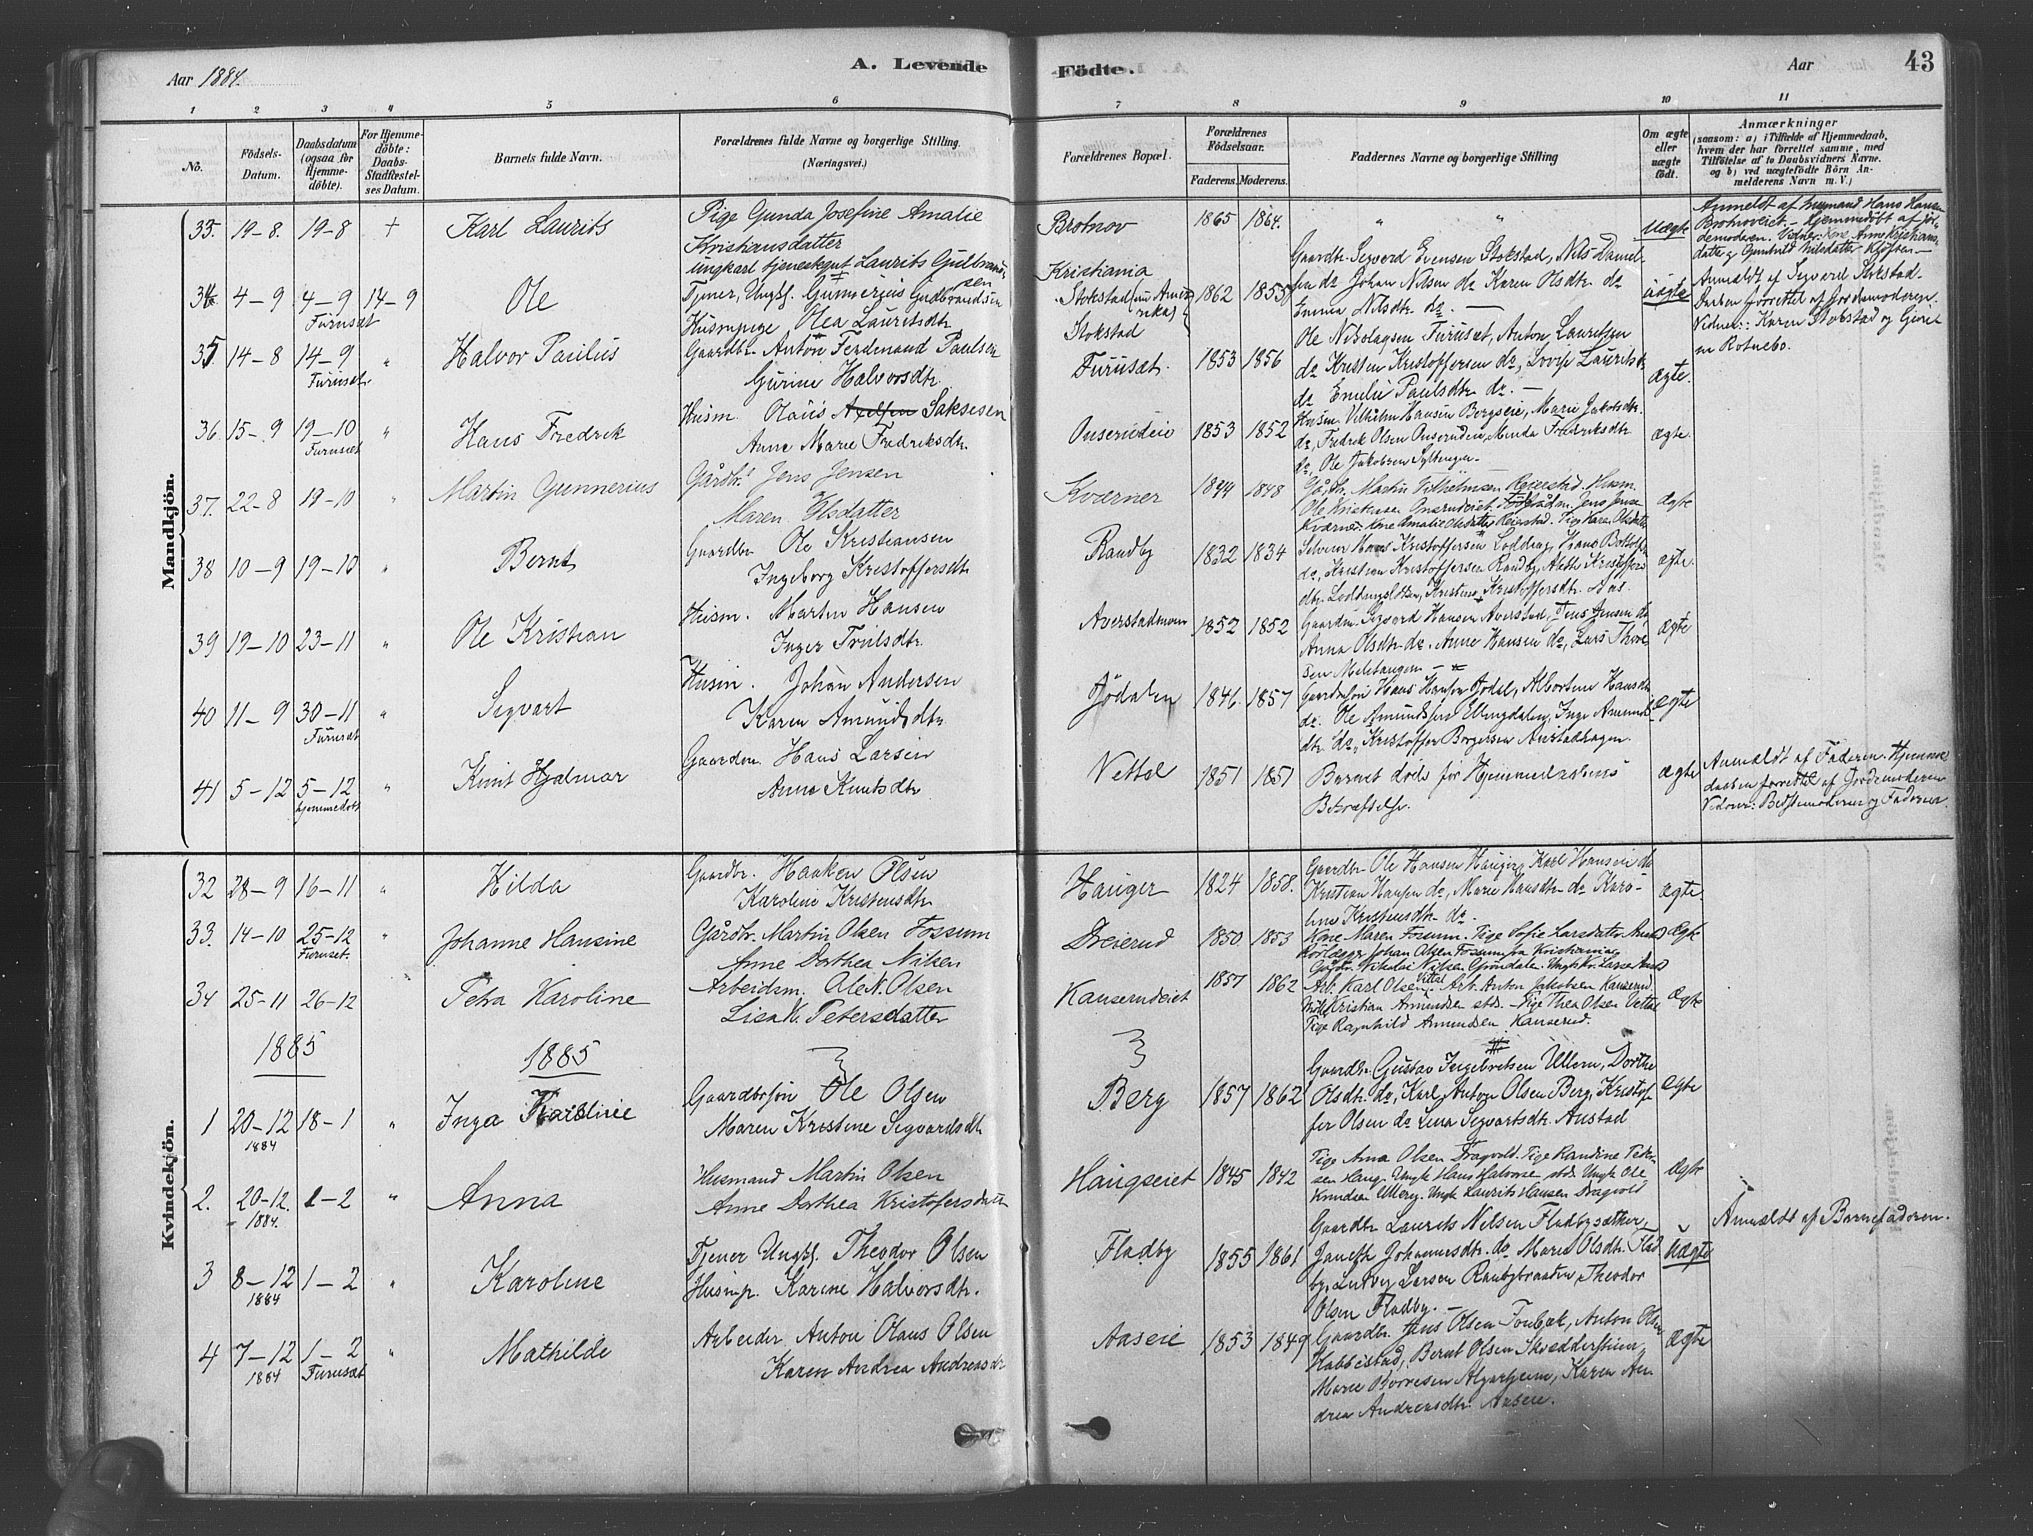 Aar 1884.
A. Levende
Födte.
Aar
43
1 2 3 4 5 6 7 8 9 10 11
No.
Födsels-
Datum.
Daabsdatum
(ogsaa for
Hjemme-
döbte).
For Hjemme-
döbte:
Daabs-
Stadfæstel-
ses Datum.
Barnets fulde Navn.
Forældrenes fulde Navne og borgerlige Stilling.
(Næringsvei.)
Forældrenes Bopæl.
Forældrenes
Födselsaar.
Faderens. Moderens.
Faddernes Navne og borgerlige Stilling
Om ægte
eller
uægte
födt.
Anmærkninger
(saasom: a) i Tilfælde af Hjemmedaab,
hvem der har forrettet samme, med
Tilföielse af to Daabsvidners Navne.
og b) ved uægtefödte Börn An-
melderens Navn m. V.)
Mandkjön.
33. 19-8. 19-8 + Karl Laurits
Pige Gunda Josefine Amalie
Kristiansdatter
Ungkarl tjenestegut Laurits Gulbrand-
sen
Brotnov
Kristiania
1865 1864.
" "
Uægte
Anmeldt af Husmand Hans Hansen
Brotnoveiet - Hjemmedöbt af Jor-
demoderen. Vidner: Kone Anne Kristians-
datter og Gunhild Nilsdatter Klöften -
34 4-9 4-9 14-9 Ole
Furusæt
Tjener, Ungk. Gunnerius Gudbrandsen
Huusmpige, Olea Lauritsdtr
Stokstad (nu Ame-
rika)
Stokstad
1862 1855
Gaardbr. Sigverd Evensen Stokstad, Nils Daniel-
sen do Johan Nilsen do Karen Olsdtr. do
Emma Nilsdtr. do. -
uægte
Anmeldt af Sigvard Stokstad.
Daaben forrettet af Jordemoderen.
Vidner: Karen Stokstad og
35 14-8 14-9 " Halvor Paulus
Furusæt
Gaardbr. Anton Ferdinand Paulsen
Gurine Halvorsdtr.
Furusæt.
1853 1856
Ole Nikolaysen Furusæt, Anton Lauritsen
do Kristen Kristoffersen do, Lovise Lauritsdtr
do Emilie Paulsdtr do. -
ægte.
36. 15-9 19-10 " Hans Fredrik
Furusæt
Husm. Olaus Axelsen Saksesen
Anne Marie Fredriksdtr.
Onserudeie
1853 1852
Husm. Vilhelm Hansen Bergseie, Marie Jakobsdtr.
do, Fredrik Olsen Onserudeie, Minda Fredriksdtr
do, Ole Jakobsen
ægte.
37. 22-8 19-10 " Martin Gunnerius
Gårdbr. Jens Jensen
Maren Olsdatter
Kværner
1844 1848
Gårdbr. Martin Vilhelmsen Reierstad. Husm.
Ole Kristiansen Onserudeiet. Jens Jensen
Kværner. Kone Amalie Olsdatter Reierstad. Pige Karen Olsdatter
ægte
38 10-9 19-10 " Bernt
Gaardbr Ole Kristiansen
Ingeborg Kristoffersdtr
Randby
1832 1834
Selveier Hans Kristoffersen Loddeng, Hans
do, Kristian Kristoffersen Randby, Anthe Kristoffers-
dtr. Kristoffersdtr. Aas.
ægte.
39 19-10 23-11 " Ole Kristian
Husm. Martin Hansen
Inger Trulsdtr.
Averstadmoen
1852 1852
Gaardm. Sigvard Hansen Averstad, Jens Jensen do,
Anna Olsdtr do. Anne Hansen do, Lars Thore-
sen
ægte
40 11-9 30-11 " Sigvart
Furusæt
Husm. Johan Andersen
Karen Amundsdtr.
Gjödalen
1846. 1857
Gaardmsön Hans Hansen Gjödal, Albertine Hansdtr
do. Ole Amundsen Ellingdalen, Inge Amunds-
dtr. do, Kristoffer Borgersen
ægte
41 5-12 5-12 " Knut Hjalmar
hjemmedöbt
Gaardm. Hans Larsen
Anne Knutsdtr
Nettol
1851 1851
Barnet döde för Hjemmedaabens
Bekræftelse.
ægte
Anmeldt af Faderen. Hjemme-
daaben forrettet af Jordemoderen
Vidner: Bedstemoderen og Faderen.
Kvindekjön.
32 28-9 16-11 " Hilda
Gaardbr. Haaken Olsen
Karoline Kristensdtr
Hauger
1824 1858.
Gaardbr Ole Hansen Hauger, Karl Hansen do
Kristian Hansen do, Marie Hansdtr. do Karo-
line Kristensdtr do.
ægte.
33. 14-10 25-12 " Johanne Hansine
Furuset.
Gårdbr. Martin Olsen Fossum
Anne Dorthea Nilsen
Dreierud
1850 1853
Kone Maren Fossum. Pige Sofie Larsdatter
Johan Olsen Fossum fra Kristiania
Gårdbr. Nikolai Nilsen Gröndalen. Ungk.
ægte
34 25-11 26-12 Petra Karoline
Arbeidsm. Ole N. Olsen
Lisa K. Petersdatter
Kauserudeiet
1857 1862
Arb. Karl Olsen Vettal. Arb. Anton Jakobsen Kauserud
Kristian Amundsen stds. - Pige Thea Olsen Vettal
Pige Ragnhild Amundsen Kauserud.
ægte
1885
1885
1 20-12 18-1 " Inga Karoline
1884
Gaardbrsön Ole Olsen
Maren Kristine Sigvardsdtr
Berg
1857 1862
Gaardbr. Gustav Ingebretsen Ullern, Dorthe
Olsdtr. do, Karl Anton Olsen Berg, Kristof-
fer Olsen do Lina Sigvartsdtr. Austad
ægte
2. 20-12. 1-2 " Anna
1884.
Husmand Martin Olsen
Anne Dorthea Kristofersdatter
Haugseiet
1845 1842
Pige Anna Olsen Dragvold. Pige Randine Peter-
sen Haug. Ungk Hans Halvorsen stds. Ungk Ole
Knudsen Ullern. Ungk Laurits Hansen Dragvold
ægte
3 8-12 1-2 " Karoline
1884
Tjener Ungk. Theodor Olsen
Husmp. Karine Halvorsdtr.
Fladby
1855 1861
Gaardbr Laurits Nilsen Fladbysæther,
Johannesdtr. do Maren Olsdtr. Flad-
by, Ludvig Larsen Randbybraaten, Theodor
Olsen Fladby. -
Uægte
Anmældt af Barnefaderen.
4 7-12 1-2 " Mathilde
1884 Furusæt
Arbeider Anton Olaus Olsen
Karen Andrea Andreasdtr
Aaseie
1853 1849
Gaardbr. Jens Olsen Anton Olsen
Habberstad, Bernt Olsen Skreddersheien,
Maren Algarheim, Karen An-
drea Andreasdtr. Aaseie.
ægte